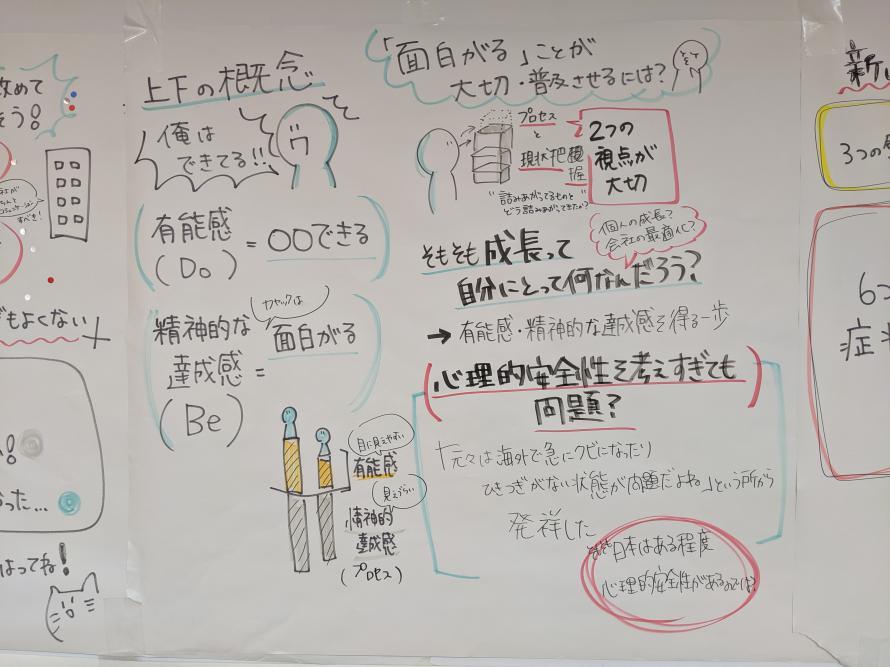 改めて
そう!
もよくない
った…
はってね!
上下の概念
俺は
できてる!!
有能感
(Do)
= 〇〇できる
精神的な
達成感 =
(Be)
カヤックは
面白がる
目に見えやすい
有能感
見えづらい
精神的
達成感
(プロセス)
「面白がる」ことが
大切・普及させるには?
プロセス
と
現状把握
2つの
視点が
大切
"詰みあがってるものと
どう詰みあがってきたか?"
個人の成長?
会社の最適化?
そもそも成長って
自分にとって何なんだろう?
→ 有能感・精神的な達成感を得る一歩
(心理的安全性を考えすぎても
問題?)
「元々は海外で急にクビになったり
ひきつぎがない状態が問題だよね」という所から
発祥した
日本はある程度
心理的安全性があるのでは?
新い
3つの
6つ
症